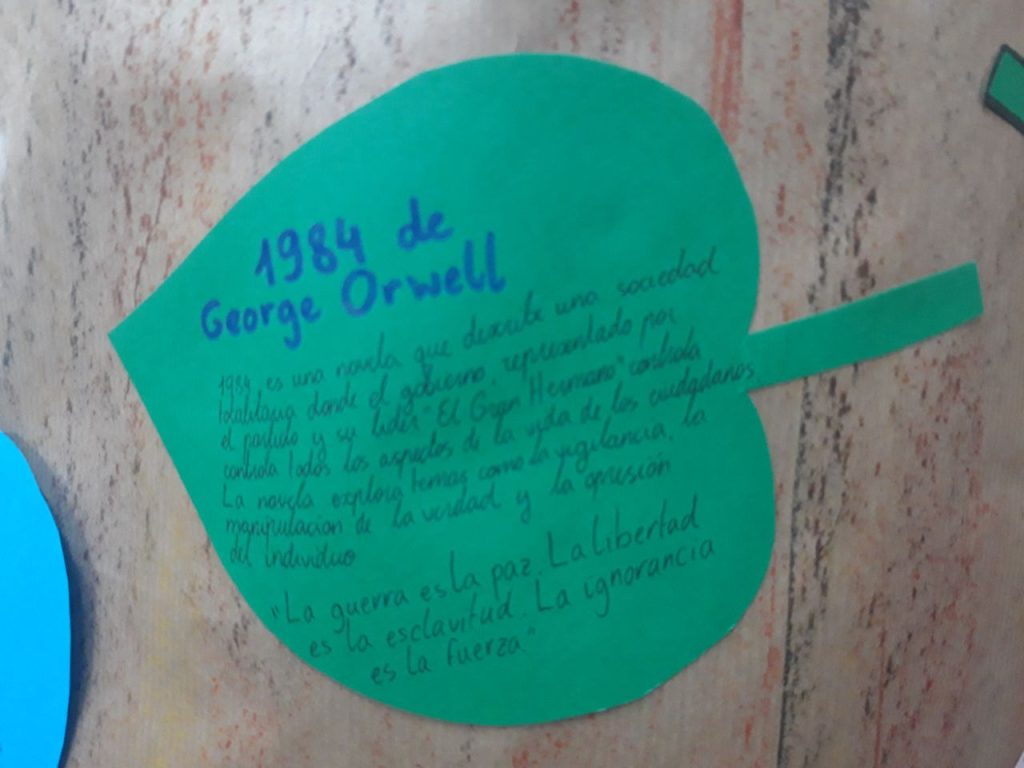 1984 de
George Orwell
1984 es una novela que describe una sociedad
totalitaria donde el gobierno, representado por
el partido y su lider "El Gran Hermano" controla
controla todos los aspectos de la vida de los ciudadanos
La novela explora temas como la vigilancia, la
manipulacion de la verdad y la opresión
del individuo
"La guerra es la paz. La libertad
es la esclavitud. La ignorancia
es la fuerza"